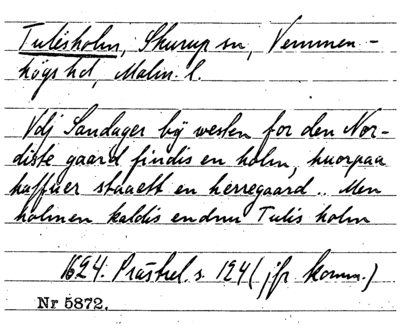 Tulisholm, Skurup sn, Vemmen-
högs hd, Malm. l.
Vdj Sandager bÿ westen for den Nor-
diste gaard findis en holm, huorpaa
haffuer staaett en herregaard .. Men
holmen kaldis endnu Tulis holm
1624. Prästrel. s. 124 (jfr komm.)
Nr 5872.